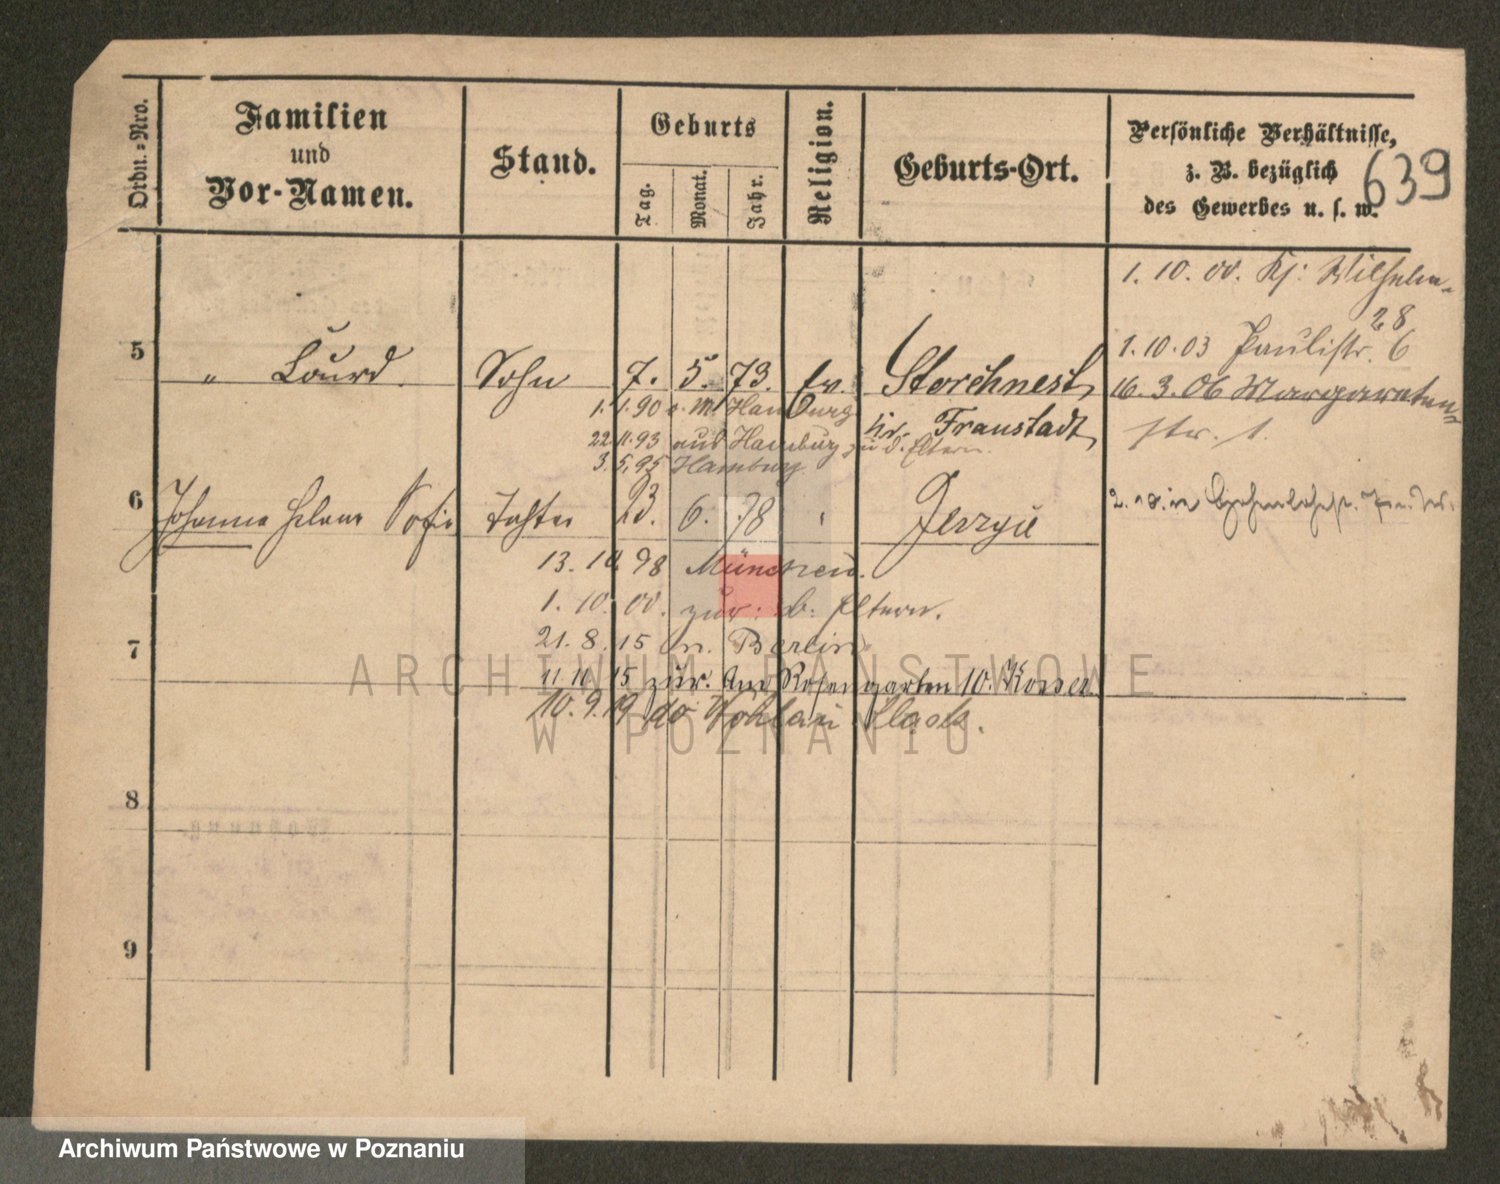 Ordn.=Nro.
Familien
und
Vor-Namen.
Stand.
Geburts
Tag.
Monat.
Jahr.
Religion.
Geburts-Ort.
Persönliche Verhältnisse,
z. B. bezüglich
des Gewerbes u. s. w.
639
1. 10. 00. Wilhelm-
28
1. 10. 03 Paulistr. 6
5
" Sohn 7. 5. 73. ev. Storchnest,
16. 3. 06 Margareten-
str. 1.
1. 1. 90 Hamburg
Kr. Fraustadt,
22. 11. 93 aus Hamburg zu d. Eltern.
3. 5. 95 Hamburg
6
Johanna Helene Sofie Tochter 23. 6. 78 " Jerzyce
13. 10. 98 München.
1. 10. 00. zur: d: Eltern.
7
21. 8. 15 n. Berlin
11. 11. 15 zur. Rosengarten 10.
10. 9. 19 do
8
9
ARCHIWUM PAŃSTWOWE
W POZNANIU
Archiwum Państwowe w Poznaniu